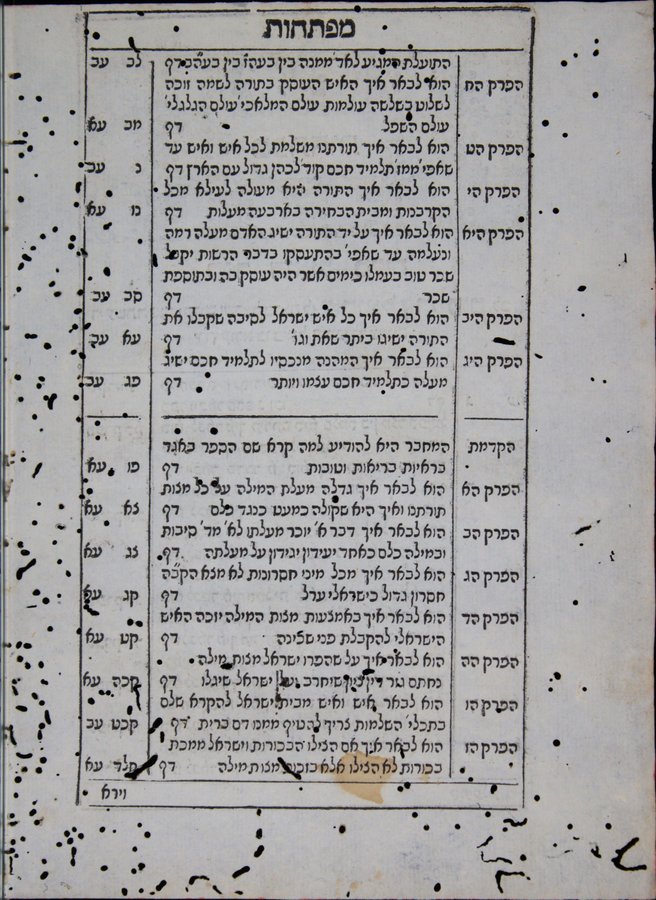 מפתחות
התועלת המגיע לאד' ממנה בין בעה"ז בין בעה"ב דף לב עב
הפרק הח הוא לבאר איך האיש העוסק בתורה לשמה זוכה
לשלוט בשלשה עולמות עולם המלאכי' עולם הגלגלי'
עולם השפל דף מב עא
הפרק הט הוא לבאר איך תורתנו משלמת לכל איש ואיש עד
שאפי' ממז' תלמיד חכם קוד' לכהן גדול עם הארץ דף נ עב
הפרק הי הוא לבאר איך התורה היא מעולה לעילא מכל
הקרבנות ומבית הבחירה בארבעה מעלות דף נו עא
הפרק היא הוא לבאר איך על יד התורה ישיג האדם מעלה רמה
ונעלמה עד שאפי' בהתעסקו בדבר הרשות יקבל
שכר טוב בעמלו כימים אשר היה עוסק בה ובתוספת
שכר דף סב עב
הפרק היב הוא לבאר איך כל איש ישראל לסיבה שקבלו את
התורה ישיגו ביתר שאת וגו' דף עא עב
הפרק היג הוא לבאר איך המהנה מנכסיו לתלמיד חכם ישיג
מעלה כתלמיד חכם עצמו ויותר דף פג עב
הקדמת המחבר היא להודיע למה קרא שם הספר
בראיות בריאות וטובות דף פו עא
הפרק הא הוא לבאר איך גדלה מעלת המילה על כל מצות
תורתנו ואיך היא שקולה כמעט כנגד כלם דף צא עא
הפרק הב הוא לבאר איך דבר א' יוכר מעלתו לא' מד' סיבות
ובמילה כלם כאחד יעידון יגידון על מעלתה דף צג עא
הפרק הג הוא לבאר איך מכל מיני חסרונות לא מצא הקב"ה
חסרון גדול כישראלי ערל דף קג עא
הפרק הד הוא לבאר איך באמצעות מצות המילה יזכה האיש
הישראלי להקבלת פני שכינה דף קט עא
הפרק הה הוא לבאר איך על שהפרו ישראל מצות מילה
נחתם גזר דין ציון שיחרב ועל ישראל שיגלו דף קכה עא
הפרק הו הוא לבאר איש ואיש מבית ישראל להקרא שלם
בתכלי' השלמות צריך להטיף ממנו דם ברית דף קכט עב
הפרק הז הוא לבאר איך אם הצילו הבכורות וישראל ממכת
בכורות לא הצילו אלא בזכות מצות מילה דף קלד עא
וירא